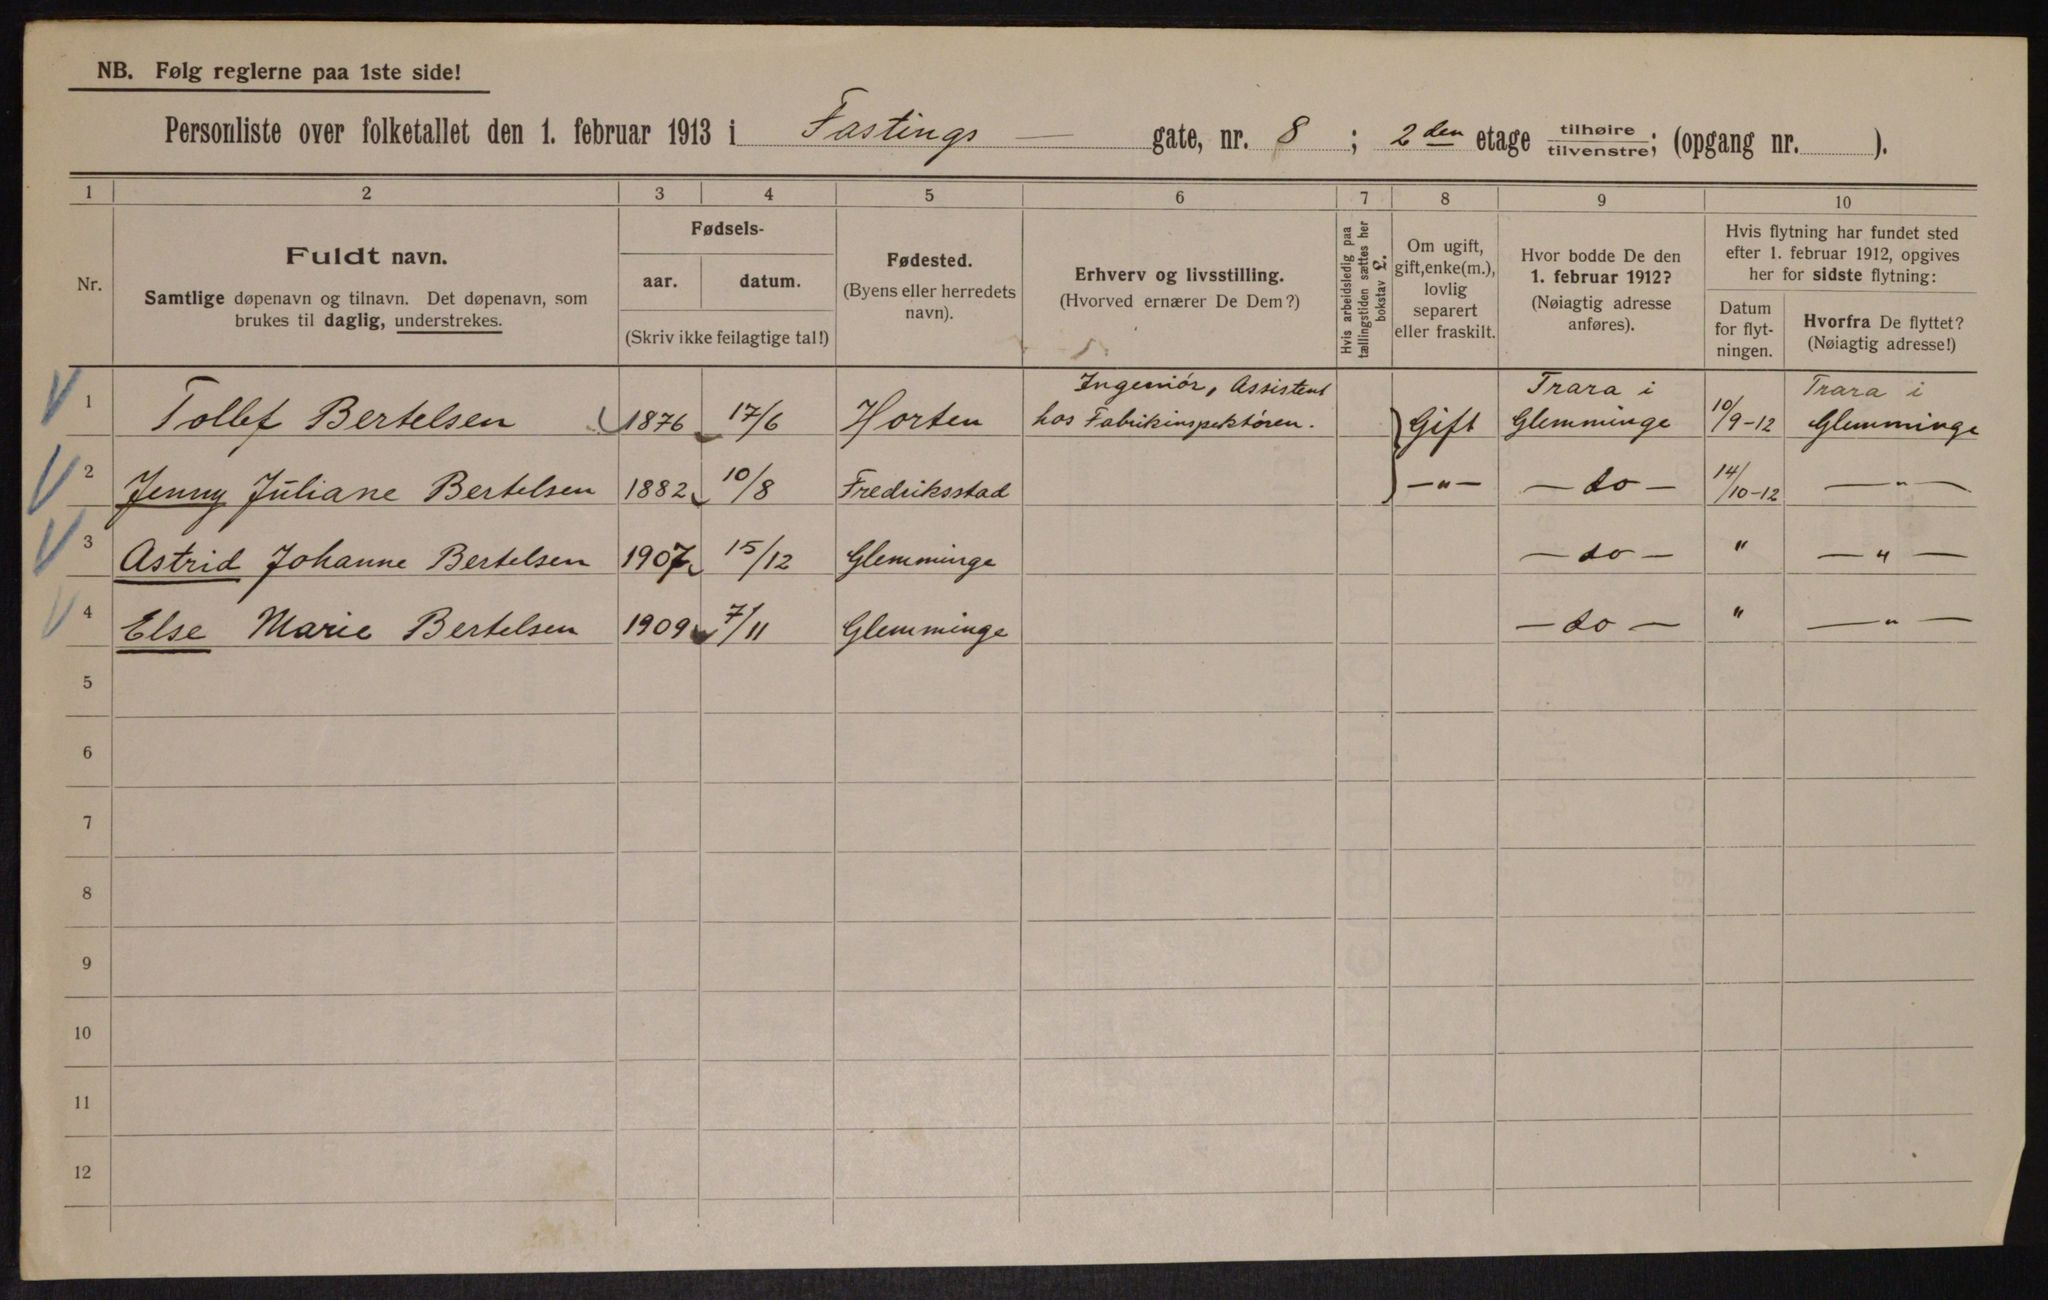 NB. Følg reglerne paa 1ste side!
Personliste over folketallet den 1. februar 1913 i Fastings — gate, nr. 8 ; 2den etage tilhøire/tilvenstre; (opgang nr. ).
1 2 3 4 5 6 7 8 9 10
Nr.
Fuldt navn.
Samtlige døpenavn og tilnavn. Det døpenavn, som
brukes til daglig, understrekes.
Fødsels-
aar. datum.
(Skriv ikke feilagtige tal!)
Fødested.
(Byens eller herredets
navn).
Erhverv og livsstilling.
(Hvorved ernærer De Dem?)
Hvis arbeidsledig paa
tællingstiden sættes her
bokstav £.
Om ugift,
gift, enke(m.),
lovlig
separert
eller fraskilt.
Hvor bodde De den
1. februar 1912?
(Nøiagtig adresse
anføres).
Hvis flytning har fundet sted
efter 1. februar 1912, opgives
her for sidste flytning:
Datum
for flyt-
ningen.
Hvorfra De flyttet?
(Nøiagtig adresse!)
Ingeniör, Assistent Trara i Trara i
1 Tollef Bertelsen 1876 17/6 Horten hos Fabrikinspektören. Gift Glemminge 10/9-12 Glemminge
2 Jenny Juliane Bertelsen 1882 10/8 Fredriksstad —"— — do — 14/10-12 —"—
3 Astrid Johanne Bertelsen 1907 15/12 Glemminge — do — " —"—
4 Else Marie Bertelsen 1909 7/11 Glemminge — do — " —"—
5
6
7
8
9
10
11
12